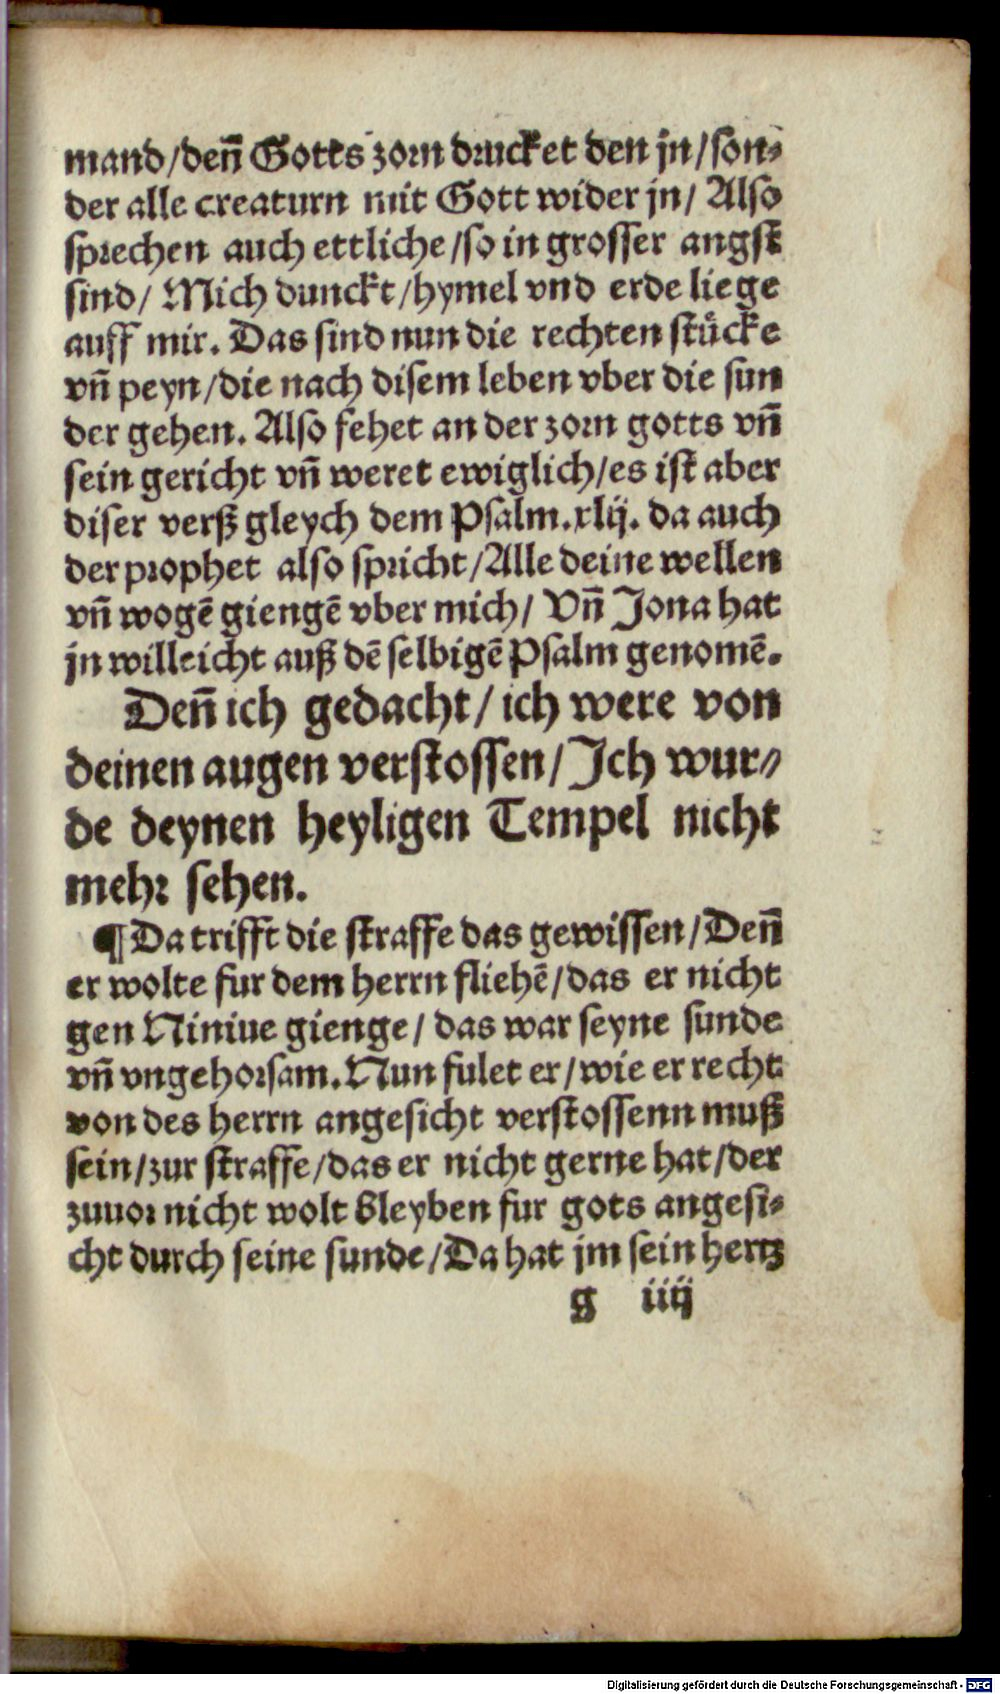 mand/deñ Gotts zorn drucket den jn/son⸗
der alle creaturn mit Gott wider jn/ Also
sprechen auch ettliche/so in grosser angst
sind/ Mich dunckt/hymel vnd erde liege
auff mir. Das sind nun die rechten stůcke
vñ peyn/die nach disem leben vber die sun
der gehen. Also fehet an der zorn gotts vñ
sein gericht vñ weret ewiglich/es ist aber
diser verß gleych dem Psalm.xlij. da auch
der prophet also spricht/Alle deine wellen
vñ wogẽ giengẽ vber mich/ Vñ Jona hat
jn willeicht auß dẽ selbigẽ Psalm genomẽ.
Deñ ich gedacht/ ich were von
deinen augen verstossen/ Jch wur⸗
de deynen heyligen Tempel nicht
mehr sehen.
¶ Da trifft die straffe das gewissen/Deñ
er wolte fur dem herrn fliehẽ/das er nicht
gen Niniue gienge/ das war seyne sunde
vñ vngehorsam. Nun fulet er/wie er recht
von des herrn angesicht verstossenn muß
sein/zur straffe/das er nicht gerne hat/der
zuuor nicht wolt bleyben fur gots angesi⸗
cht durch seine sunde/Da hat jm sein hertz
g iiij
Digitalisierung gefördert durch die Deutsche Forschungsgemeinschaft - DFG